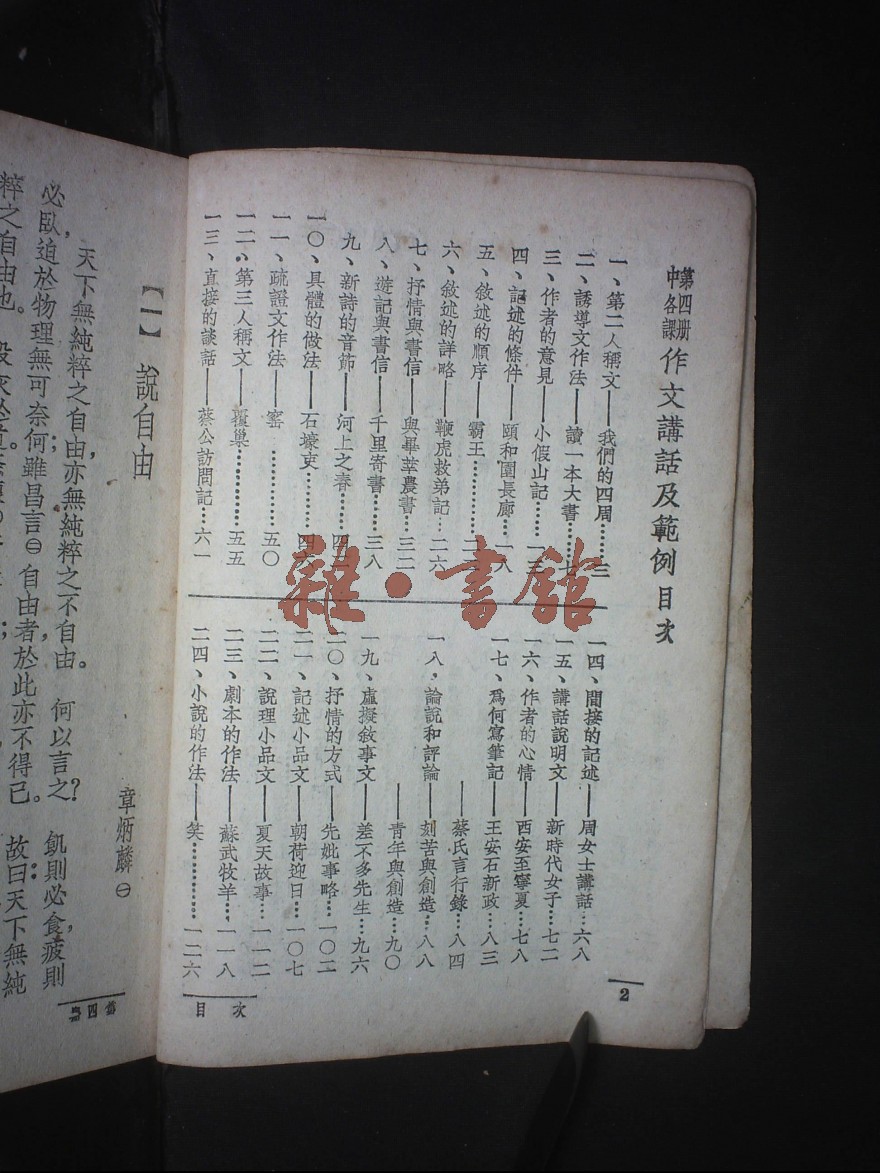 第四册
中各課
作文講話及範例目次
一、第二人稱文——我們的四周………三
二、誘導文作法——讀一本大書………七
三、作者的意見——小假山記……一三
四、記述的條件——頤和園長廊…一八
五、敘述的順序——霸王
六、敘述的詳略——鞭虎救弟記…二六
七、抒情與書信——與畢莘農書…三二
八、遊記與書信——千里寄書……三八
九、新詩的音節——河上之春
一〇、具體的做法——石壕吏
一一、疏證文作法——窰………五〇
一二、第三人稱文——覆巢………五五
一三、直接的談話——蔡公訪問記…六一
一四、間接的記述——周女士講話…六八
一五、講話說明文——新時代女子…七二
一六、作者的心情——西安至寧夏…七八
一七、爲何寫筆記——王安石新政…八三
——蔡氏言行錄…八四
一八、論說和評論——刻苦與創造…八八
——青年與創造…九〇
一九、虛擬敘事文——差不多先生…九六
二〇、抒情的方式——先妣事略…一〇二
二一、記述小品文——朝荷迎日…一〇七
二二、說理小品文——夏天故事…一一二
二三、劇本的作法——蘇武牧羊…一一八
二四、小說的作法——笑…………一二六
目次
2
雜·書館
【一】 說自由
章炳麟㊀
天下無純粹之自由,亦無純粹之不自由。何以言之?飢則必食,疲則
必臥,迫於物理,無可奈何;雖昌言㊁自由者,於此亦不得已。故曰天下無純
粹之自由也。
第四册